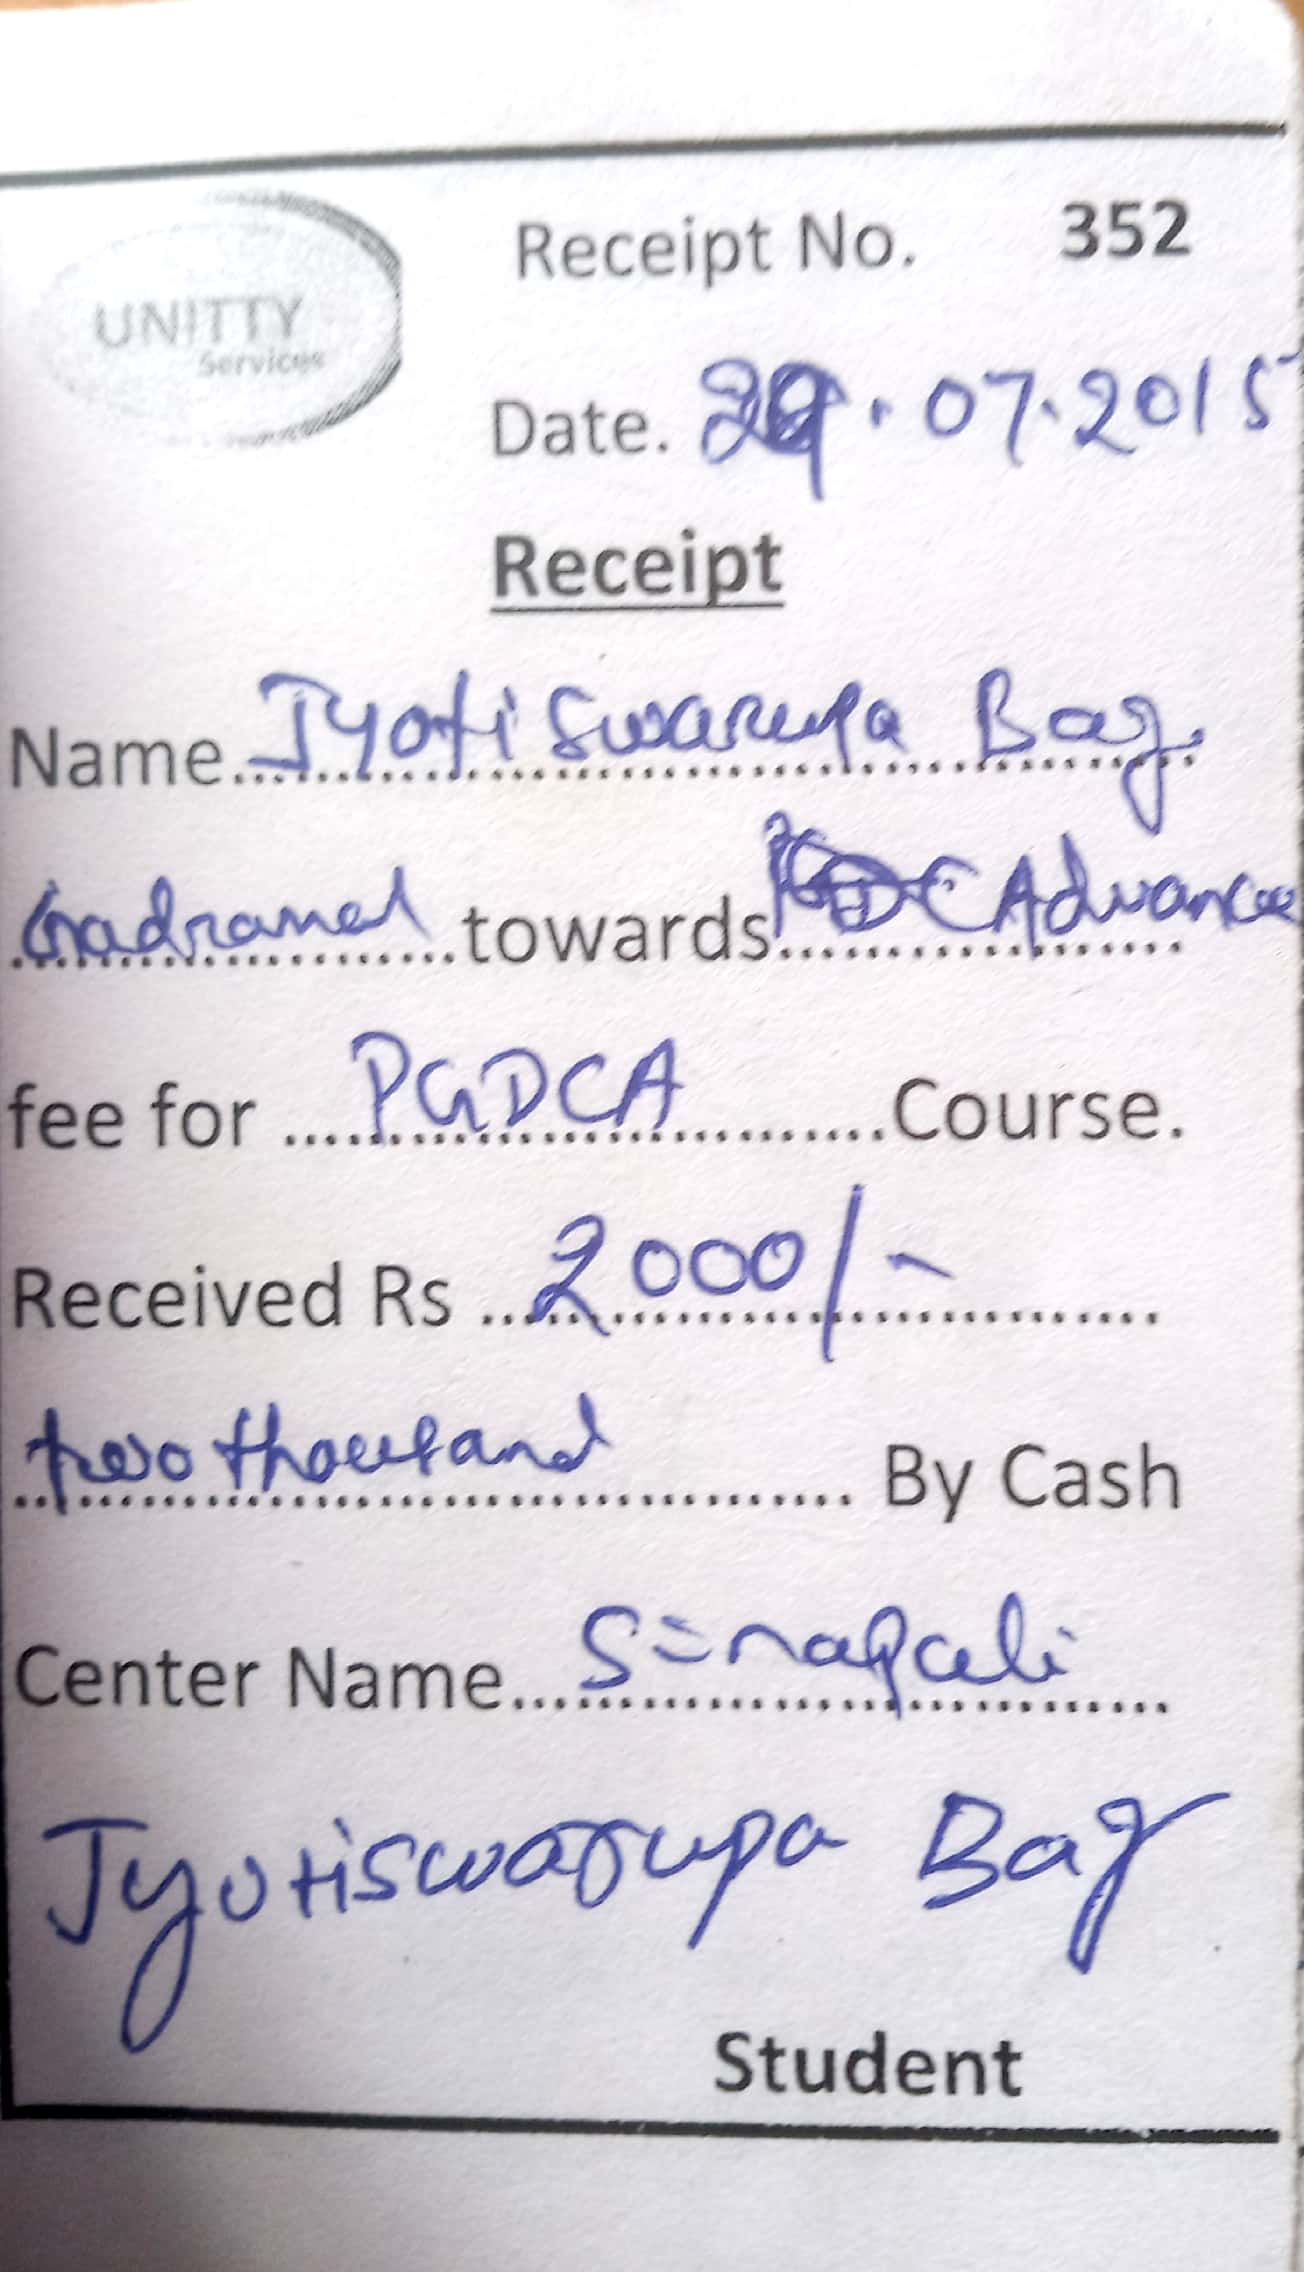 UNITTY
Services
Receipt No. 352
Date. 29.07.2015
Receipt
Name Jyotiswarupa Bag.
towards Advance
fee for PGDCA Course.
Received Rs 2000/-
two thousand By Cash
Center Name Sinapali
Jyotiswarupa Bag
Student